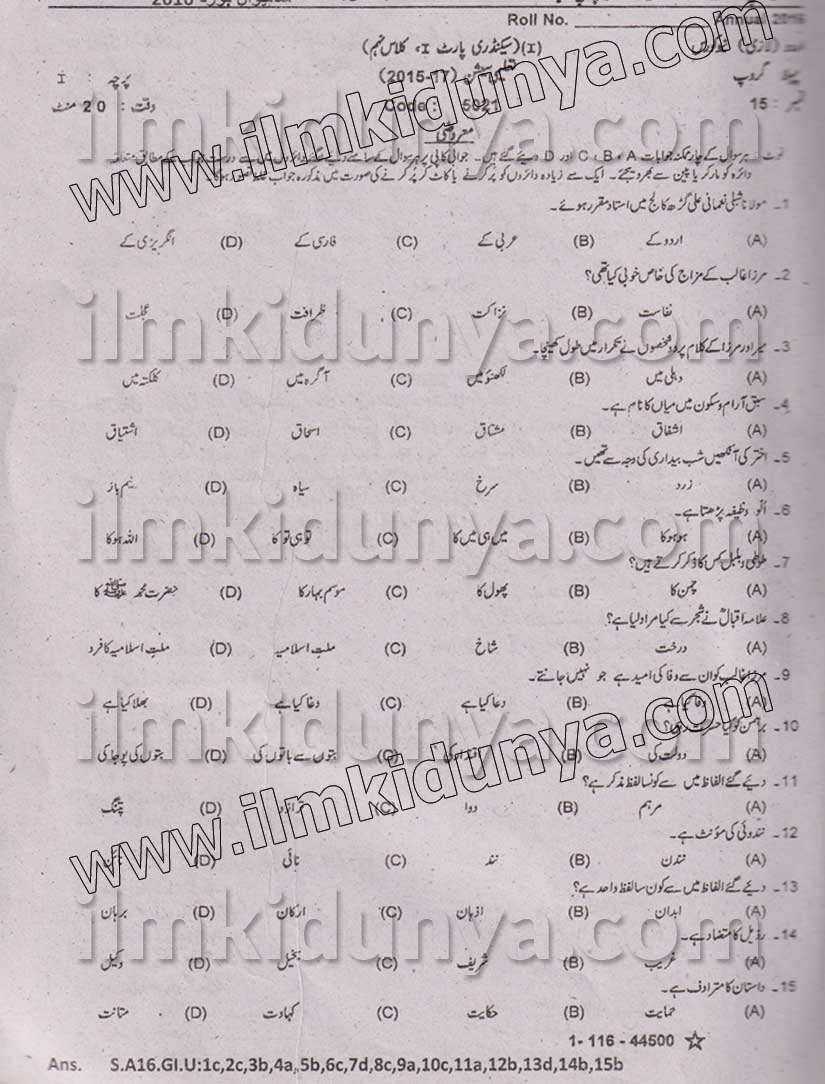 Roll No. Annual 2016
(I) (سیکنڈری پارٹ I، کلاس نہم)
پہلا گروپ (2015-17) پرچہ : I
نمبر : 15 Code : 5021 وقت : 20 منٹ
معروضی
ہر سوال کے چار ممکنہ جوابات C ، B ، A اور D دیئے گئے ہیں۔ جوابی کاپی پر ہر سوال کے سامنے دیئے گئے دائروں میں سے درست جواب کے مطابق متعلقہ
دائرہ کو مارکر یا پین سے بھر دیجئے۔ ایک سے زیادہ دائروں کو پُر کرنے یا کاٹ کر پُر کرنے کی صورت میں مذکورہ جواب غلط تصور ہوگا۔
1۔ مولانا شبلی نعمانی علی گڑھ کالج میں استاد مقرر ہوئے۔
(A) اردو کے (B) عربی کے (C) فارسی کے (D) انگریزی کے
2۔ مرزا غالب کے مزاج کی خاص خوبی کیا تھی؟
(A) نفاست (B) نزاکت (C) ظرافت (D) عجلت
3۔ میر اور مرزا کے کلام پر دو شخصوں نے تکرار میں طول کھینچا۔
(A) دہلی میں (B) لکھنؤ میں (C) آگرہ میں (D) کلکتہ میں
4۔ سبق آرام و سکون میں میاں کا نام ہے۔
(A) اشفاق (B) مشتاق (C) اسحاق (D) اشتیاق
5۔ اختر کی آنکھیں شب بیداری کی وجہ سے تھیں۔
(A) زرد (B) سرخ (C) سیاہ (D) نیم باز
6۔ اُلو وظیفہ پڑھتا ہے۔
(A) ہو ہو کا (B) میں ہی میں کا (C) تو ہی تو کا (D) اللہ ہو کا
7۔ طوطی و بلبل کس کا ذکر کرتے ہیں؟
(A) چمن کا (B) پھول کا (C) موسم بہار کا (D) حضرت محمد ﷺ کا
8۔ علامہ اقبالؒ نے شجر سے کیا مراد لیا ہے؟
(A) درخت (B) شاخ (C) ملتِ اسلامیہ (D) ملتِ اسلامیہ کا فرد
9۔ مرزا غالب کو ان سے وفا کی امید ہے جو نہیں جانتے۔
(A) وفا کیا ہے (B) دعا کیا ہے (C) دغا کیا ہے (D) بھلا کیا ہے
10۔ برہمن کو کیا حسرت رہی؟
(A) دولت کی (B) (C) بتوں سے باتوں کی (D) بتوں کی پوجا کی
11۔ دیئے گئے الفاظ میں سے کونسا لفظ مذکر ہے؟
(A) مرہم (B) دوا (C) ترازو (D) پتنگ
12۔ نندوئی کی مؤنث ہے۔
(A) نندن (B) نند (C) نائی (D)
13۔ دیئے گئے الفاظ میں سے کون سا لفظ واحد ہے؟
(A) ابدان (B) اذہان (C) ارکان (D) برہان
14۔ رذیل کا متضاد ہے۔
(A) غریب (B) شریف (C) بخیل (D) وکیل
15۔ داستان کا مترادف ہے۔
(A) حمایت (B) حکایت (C) کہاوت (D) متانت
1- 116 - 44500 ☆
Ans. S.A16.GI.U:1c,2c,3b,4a,5b,6c,7d,8c,9a,10c,11a,12b,13d,14b,15b
www.ilmkidunya.com
ilmkidunya.com
ilmkidunya.com
ilmkidunya.com
ilmkidunya.com
www.ilmkidunya.com
ilmkidunya.com